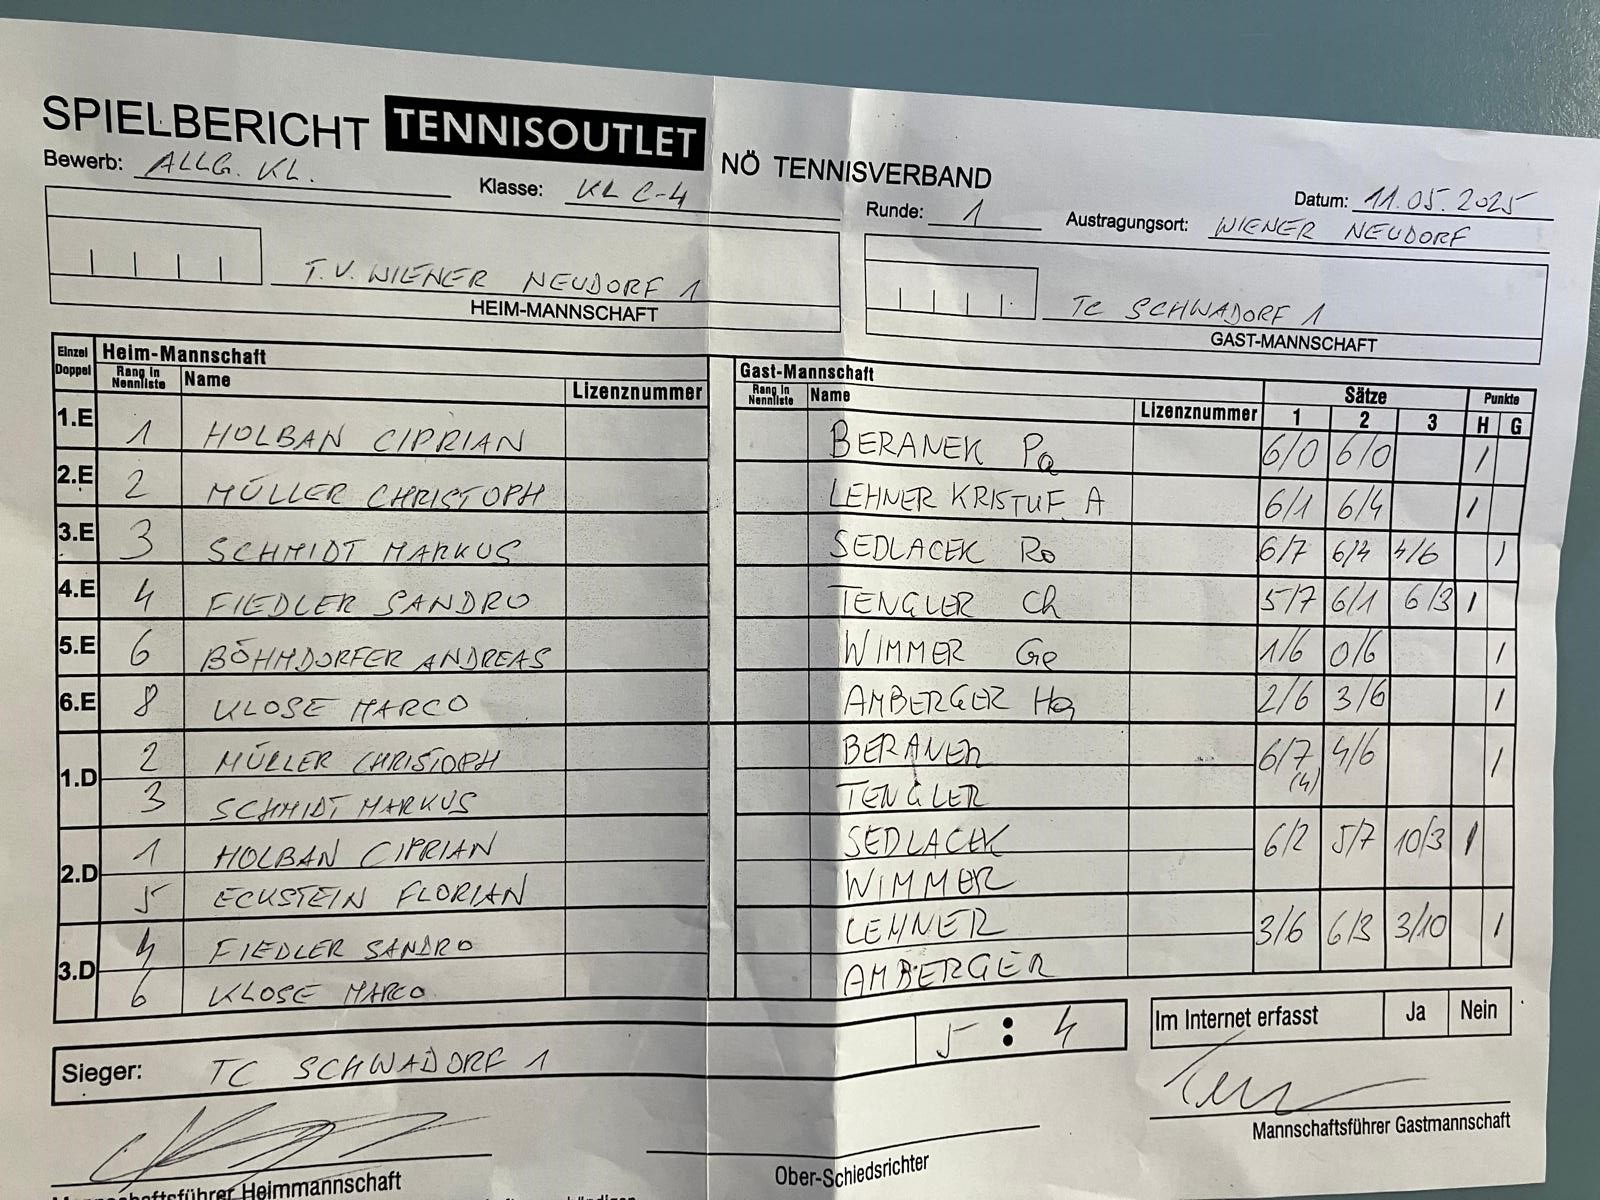 SPIELBERICHT TENNISOUTLET NÖ TENNISVERBAND
Bewerb: ALLG. KL. Klasse: KL C-4 Runde: 1 Austragungsort: WIENER NEUDORF Datum: 11.05.2025
T.V. WIENER NEUDORF 1
HEIM-MANNSCHAFT
TC SCHWADORF 1
GAST-MANNSCHAFT
Einzel Doppel Heim-Mannschaft Gast-Mannschaft Sätze Punkte
Rang in Nennliste Name Lizenznummer Rang in Nennliste Name Lizenznummer 1 2 3 H G
1.E 1 HOLBAN CIPRIAN BERANEK Pa 6/0 6/0 /
2.E 2 MÜLLER CHRISTOPH LEHNER KRISTUF A 6/1 6/4 /
3.E 3 SCHMIDT MARKUS SEDLACEK Ro 6/7 6/4 4/6 /
4.E 4 FIEDLER SANDRO TENGLER Ch 5/7 6/1 6/3 /
5.E 6 BÖHMDORFER ANDREAS WIMMER Ge 1/6 0/6 /
6.E 8 KLOSE MARCO AMBERGER Ha 2/6 3/6 /
1.D 2 MÜLLER CHRISTOPH BERANEK 6/7 (4) 4/6 /
3 SCHMIDT MARKUS TENGLER
2.D 1 HOLBAN CIPRIAN SEDLACEK 6/2 5/7 10/3 /
5 ECKSTEIN FLORIAN WIMMER
3.D 4 FIEDLER SANDRO LEHNER 3/6 6/3 3/10 /
6 KLOSE MARCO AMBERGER
5 : 4
Im Internet erfasst Ja Nein
Sieger: TC SCHWADORF 1
Mannschaftsführer Heimmannschaft
Ober-Schiedsrichter
Mannschaftsführer Gastmannschaft